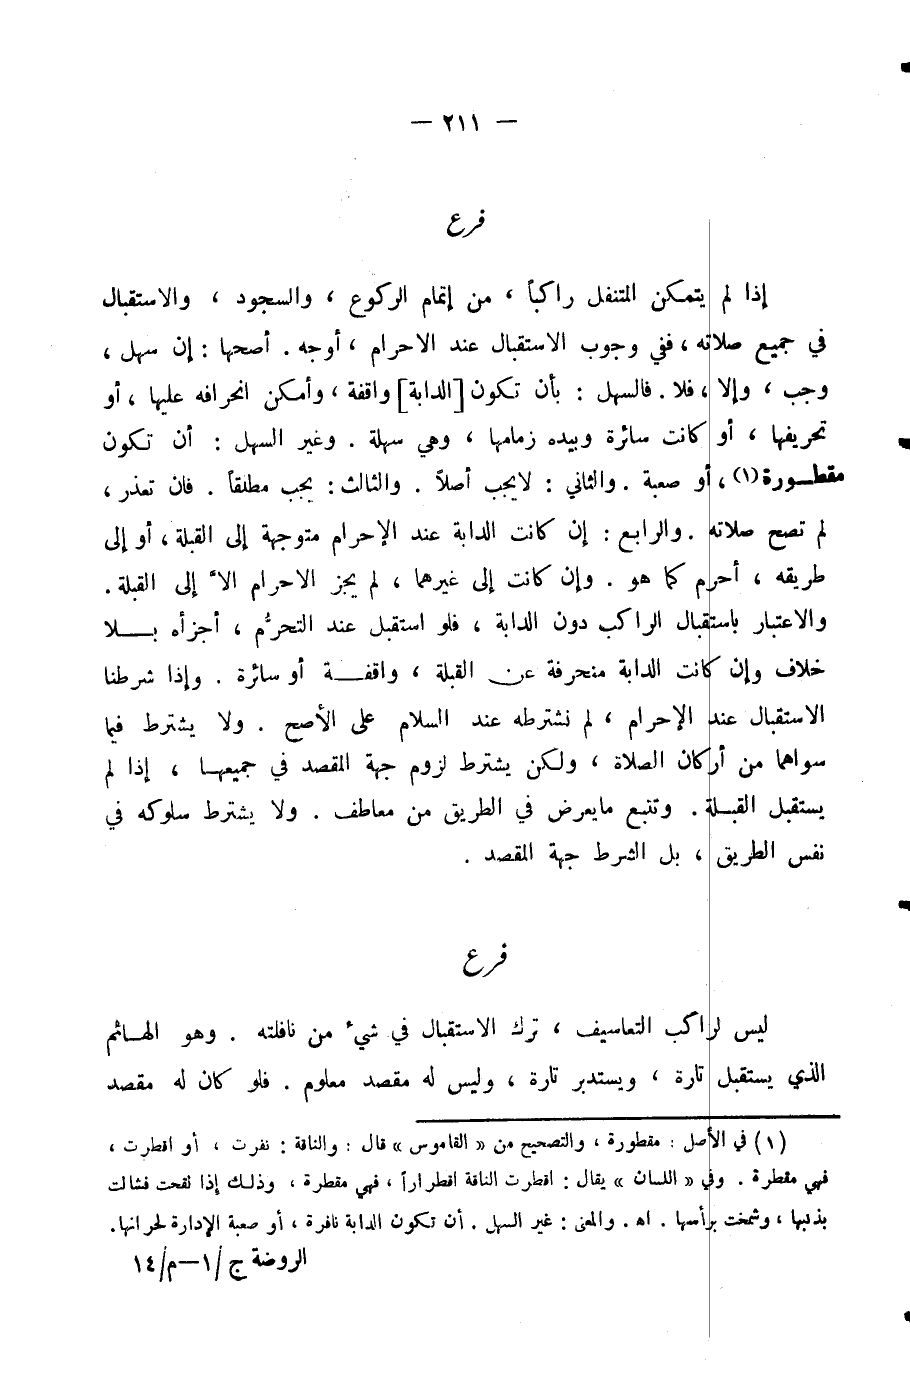 — ٢١١ —
فرع
إذا لم يتمكن المتنفل راكباً ، من إتمام الركوع ، والسجود ، والاستقبال
في جميع صلاته ، ففي وجوب الاستقبال عند الاحرام ، أوجه . أصحها : إن سهل ،
وجب ، وإلا ، فلا . فالسهل : بأن تكون [الدابة] واقفة ، وأمكن انحرافه عليها ، أو
تحريفها ، أو كانت سائرة وبيده زمامها ، وهي سهلة . وغير السهل : أن تكون
مقطورة (١) ، أو صعبة . والثاني : لايجب أصلاً . والثالث : يجب مطلقاً . فان تعذر ،
لم تصح صلاته . والرابع : إن كانت الدابة عند الإحرام متوجهة إلى القبلة ، أو إلى
طريقه ، أحرم كما هو . وإن كانت إلى غيرهما ، لم يجز الاحرام الاّ إلى القبلة .
والاعتبار باستقبال الراكب دون الدابة ، فلو استقبل عند التحرُّم ، أجزأه بــلا
خلاف وإن كانت الدابة منحرفة عن القبلة ، واقفــة أو سائرة . وإذا شرطنا
الاستقبال عند الإحرام ، لم نشترطه عند السلام على الأصح . ولا يشترط فيما
سواهما من أركان الصلاة ، ولكن يشترط لزوم جهة المقصد في جميعهــا ، إذا لم
يستقبل القبــلة . وتتبع مايعرض في الطريق من معاطف . ولا يشترط سلوكه في
نفس الطريق ، بل الشرط جهة المقصد .
فرع
ليس لراكب التعاسيف ، ترك الاستقبال في شيء من نافلته . وهو الهــائم
الذي يستقبل تارة ، ويستدبر تارة ، وليس له مقصد معلوم . فلو كان له مقصد
(١) في الأصل : مقطورة ، والتصحيح من « القاموس » قال : والناقة : نفرت ، أو اقطرت ،
فهي مقطرة . وفي « اللسان » يقال : اقطرت الناقة اقطراراً ، فهي مقطرة ، وذلـك إذا لقحت فشالت
بذنبها ، وشمخت برأسها . اه . والمعنى : غير السهل . أن تكون الدابة نافرة ، أو صعبة الإدارة لحرانها .
الروضة ج /١–م/١٤